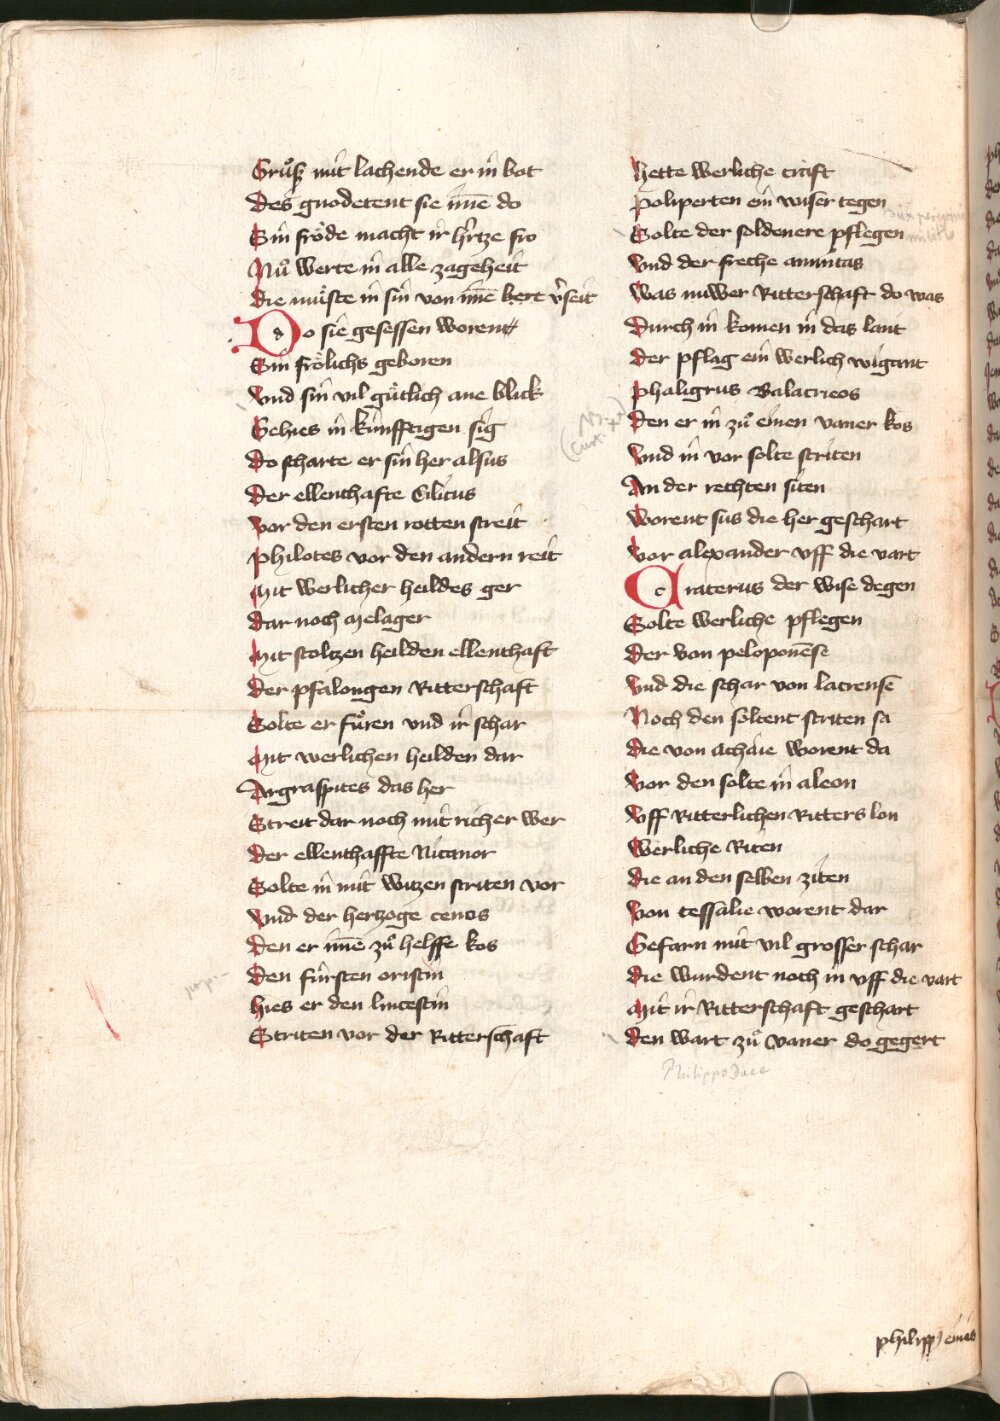 Gruͦß mit lachende er in bot
Des gnodetent sie im̄e do
Sin froͤde macht ir h̓rtze fro
Nuͦ werte in alle zageheit
Die muͤste in sin von im̄e hert v̓seit
Do sie gesessen worent
Sin froͤlichs geboren
Vnd sin vil guͤtlich ane blick
Gehies in kuͤnfftigen sig
Do scharte er sin her alsus
Der ellenthafte Cilicus
Vor den ersten rotten streit
Philotes vor den andern reit
Mit werlicher heildes ger
Dar noch Melager
Mit stoltzen heilden ellenthaft
Der pfalongen Ritterschaft
Solte er fuͤren vnd ir schar
Mit werlichen heilden dar
Argraspites das her
Streit dar noch mit richer wer
Der ellenthaffte Nicanor
Solte in mit witzen striten vor
Vnd der hertzoge cenos
Den er im̄e zuͦ helffe kos
Den fuͤrsten oristin
Hies er den lincestin
Striten vor der Ritterschaft
Hette werliche craft
Poliperten ein wiser tegen
Solte der soldenere pflegen
Vnd der freche amintas
Was nuwer Ritterschaft do was
Durch in komen in das lant
Der pflag ein werlich wigant
Phaligrus Balacrieos
Den er in zuͦ einen vaner kos
Vnd in vor solte striten
An der rechten siten
Worent sus die her geschart
Vor alexander vff die vart
Craterus der wise degen
Solte werliche pflegen
Der von peloponēse
Vnd die schar von lacrense
Noch den soltent striten sa
Die von achaie worent da
Vor den solte in aleon
Vff Ritterlichen Ritters lon
Werliche Riten
Die an den selben ziten
Von tessalie worent dar
Gefarn mit vil grosser schar
Die wurdent noch in vff die vart
Mit ir Ritterschaft geschart
Den wart zuͦ vaner do gegert
Philippo Duce
philipp) eines